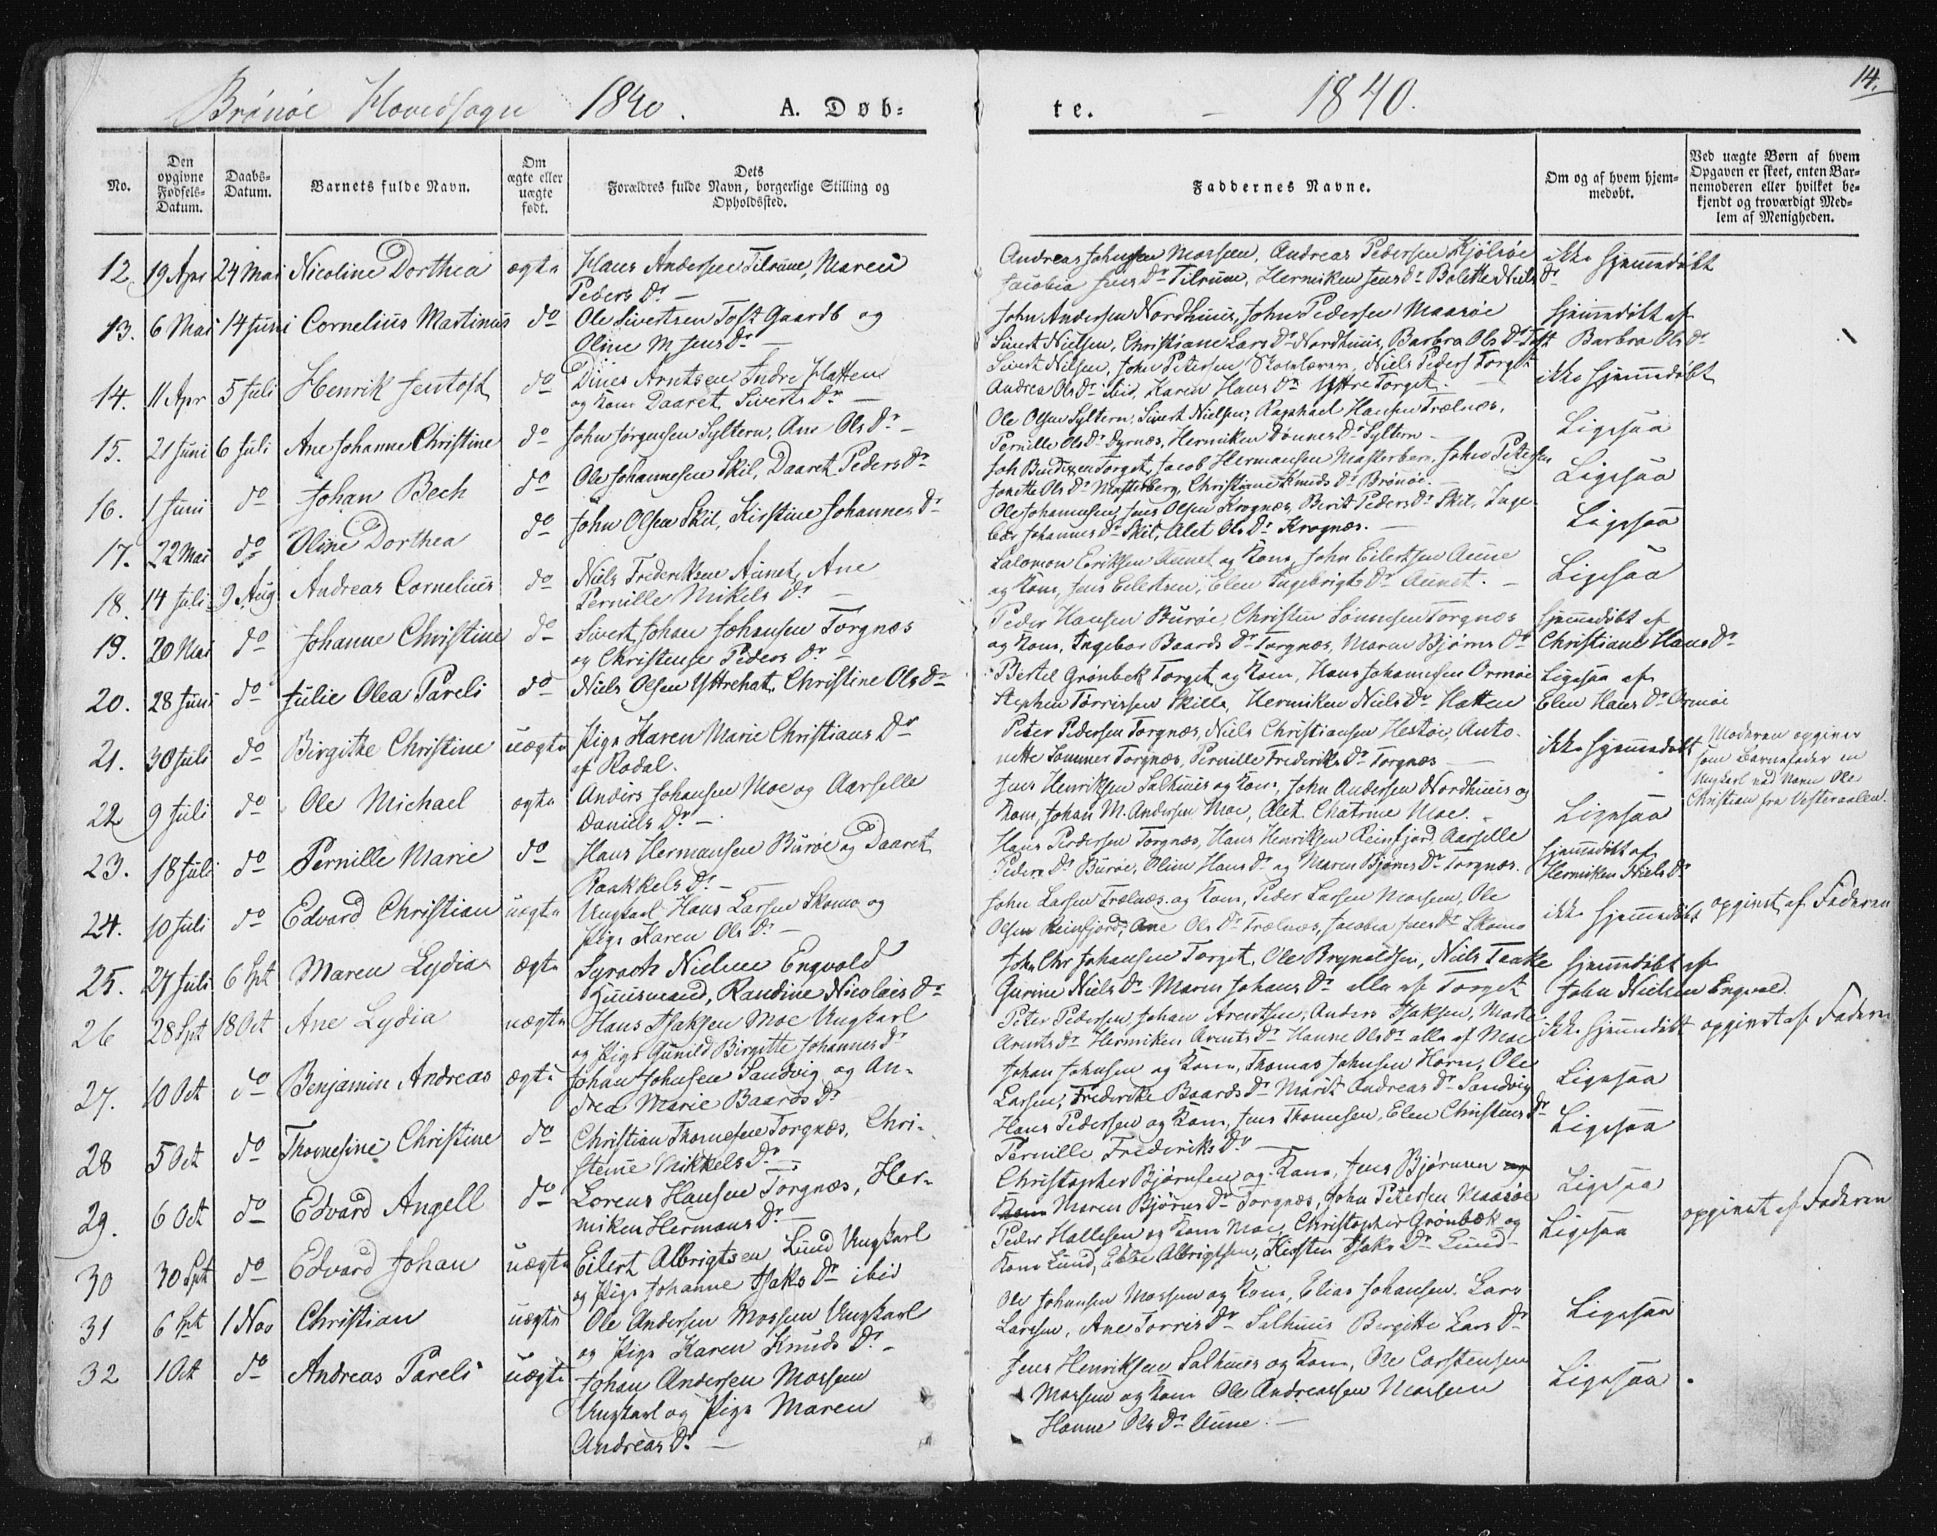 Brønøe Hovedsogn 1840. A. Døb-
te. - 1840. 14.
No.
Den opgivne Fødsels-Datum.
Daabs-Datum.
Barnets fulde Navn.
Om ægte eller uægte født.
Dets Forældres fulde Navn, borgerlige Stilling og Opholdssted.
Faddernes Navne.
Om og af hvem hjemmedøbt.
Ved uægte Børn af hvem Opgaven er skeet, enten Barnemoderen eller hvilket bekjendt og troværdigt Medlem af Menigheden.
12 19 Apr 24 Mai Nicoline Dorthea ægte Hans Andersen Tilrum, Maren
Peders Dr —
Andreas Johnsen Mossem, Andreas Pedersen Kjølsøe
Jacobia Jens Dr Tilrum, Herniken Jens Dr Bolette Niels Dr
ikke hjemmedøbt
13. 6 Mai 14 Juni Cornelius Martinus do Ole Sivertsen Toft Gaardb og
Oline M. Jens Dr —
John Andersen Nordhuus, John Pedersen Maasøe
Sivert Nielsen, Christiane Lars Dr Nordhuus, Barbra Ols Dr Toft
hjemmedøbt af
Barbra Ols Dr
14. 11 Apr 5 Juli Henrik Jentoft do Dines Arntsen Indre Hatten
og Kone Daaret Siverts Dr —
Sivert Nilsen, John Petersen Skolelærer, Niels Peders Torget
Andrea Ols Dr ibid, Karen Hans Dr Yttre Torget. —
ikke hjemmedøbt
15. 21 Juni 6 Juli Ane Johanne Christine do John Jørgensen Syltern, Ane Ols Dr —
Ole Olsen Syltern, Sivert Nielsen, Raphael Hansen Trælnæs,
Pernille Ols Dr Dyrnæs, Herniken Dønnes Dr Syltern —
Ligesaa
16. 1 Juni do Johan Bech do Ole Johannesen Skil, Daaret Peders Dr
Joh Bendixen Torget, Jacob Hermansen Mosterberg, John Petersen
Jonette Ols Dr Mosterberg, Christiane Knuds Dr Brønøe. —
Ligesaa
17. 22 Mai do Oline Dorthea do John Olsen Skil, Kirstine Johannes Dr
Ole Johannesen, Jens Olsen Krognæs, Berit Peders Dr Skil, Inge-
bor Johannes Dr Skil, Alet Ols Dr Krognæs. —
Ligesaa
18. 14 Juli 9 Aug Andreas Cornelius do Niels Frederiksen Aunet, Ane
Pernille Mikels Dr —
Salomon Eriksen Aunet og Kone, John Eilertsen Aune
og Kone, Jens Eilertsen, Elen Ingebrigts Dr Aunet. —
Ligesaa
19. 20 Mai do Johanne Christine do Sivert Johan Johansen Torgnæs
og Christense Peders Dr —
Peder Hansen Burøe, Christen Sømmsen Torgnæs
og Kone, Ingebor Baards Dr Torgnæs, Maren Bjørns Dr
hjemmedøbt af
Christiane Hans Dr
20. 28 Juni do Julie Olea Pareli do Niels Olsen Yttrehat, Christine Ols Dr
Bertel Grønbek Torget og Kone, Hans Johannesen Ormøe
Stephen Torrissen Skille, Herniken Niels Dr Hatten
Ligesaa af
Elen Hans Dr Ormøe
21. 30 Juli do Birgitte Christine uægte Pige Karen Marie Christians Dr
af Rodal.
Peter Pedersen Torgnæs, Niels Christiansen Hestøe, Anto-
nette Sommer Torgnæs, Pernille Frederiks Dr Torgnæs —
ikke hjemmedøbt
Moderen opgiver
som Barnefader en
Ungkarl ved Navn Ole
Christian fra Vesteraalen.
22 9 Juli do Ole Michael ægte Anders Johansen Moe og Aarselle
Daniels Dr —
Jens Henriksen Salhuus og Kone, John Andersen Nordhuus og
Kone, Johan M. Andersen Moe, Alet Chatrine Moe.
Ligesaa
23. 18 Juli do Pernille Marie do Hans Hermansen Burøe og Daaret
Raakkels Dr —
Hans Pedersen Torgnæs, Hans Henriksen Reinfjord, Aarselle
Peders Dr Burøe, Oline Hans Dr og Maren Bjørns Dr Torgnæs.
hjemmedøbt af
Herniken Niels Dr
24. 10 Juli do Edvard Christian uægte Ungkarl Hans Larsen Skomo og
Pige Karen Ols Dr —
John Larsen Trælnæs og Kone, Peder Larsen Mossem, Ole
Olsen Reinfjord, Ane Ols Dr Trælnæs, Jacobia Jens Dr Skomo
ikke hjemmedøbt
opgivet af Faderen
25. 27 Juli 6 Spt Maren Lydia ægte Syrach Nielsen Engvold
Huusmand, Randine Nicolais Dr
John Chr Johansen Torget, Ole Brynildsen, Niels Taakke
Gurine Niels Dr Maren Johans Dr alle af Torget
hjemmedøbt af
John Nielsen Engvol.
26 28 Spt 18 Oct Ane Lydia uægte Hans Isaksen Moe Ungkarl
og Pige Gunild Birgitte Johannes Dr
Peter Pedersen, Johan Arentsen, Anders Isaksen, Marte
Arents Dr Herniken Arents Dr Hanne Ols Dr alle af Moe
ikke hjemmedøbt
opgivet af Faderen
27. 10 Oct do Benjamin Andreas ægte Johan Johnsen Sandvig og An-
drea Marie Baards Dr
Johan Johnsen og Kone, Thomas Johnsen Horn, Ole
Larsen, Frederikke Baards Dr Marit Andreas Dr Sandvig
Ligesaa
28 5 Oct do Thomesine Christine do Christian Thomesen Torgnæs, Chri-
stense Mikkels Dr —
Hans Pedersen og Kone, Jens Thomesen, Elen Christens Dr
Pernille Frederiks Dr —
Ligesaa
29. 6 Oct do Edvard Angell do Lorens Hansen Torgnæs, Her-
niken Hermans Dr —
Christopher Bjørnsen og Kone, Jens Bjørnsen og
Kone Maren Bjørns Dr Torgnæs, John Petersen Maasøe
Ligesaa
30 30 Spt do Edvard Johan uægte Eilert Albrigtsen Lund Ungkarl
og Pige Johanne Isaks Dr ibid
Peder Hallesen og Kone Moe, Christopher Grønbæk og
Kone Lund, Ebbe Albrigtsen, Kirsten Isaks Dr Lund —
Ligesaa
opgivet af Faderen
31 6 Spt 1 Nov Christian uægte Ole Andersen Mossem Ungkarl
og Pige Karen Knuds Dr —
Ole Johansen Mossem og Kone, Elias Johansen, Lars
Larssen, Ane Torris Dr Salhuus Bergitte Lars Dr
Ligesaa
32 1 Oct do Andreas Pareli uægte Johan Andersen Mossem
Ungkarl og Pige Maren
Andreas Dr —
Jens Henriksen Salhuus og Kone, Ole Carstensen
Mossem og Kone Ole Andreassen Mossem
Hanne Ols Dr Aune. —
Ligesaa